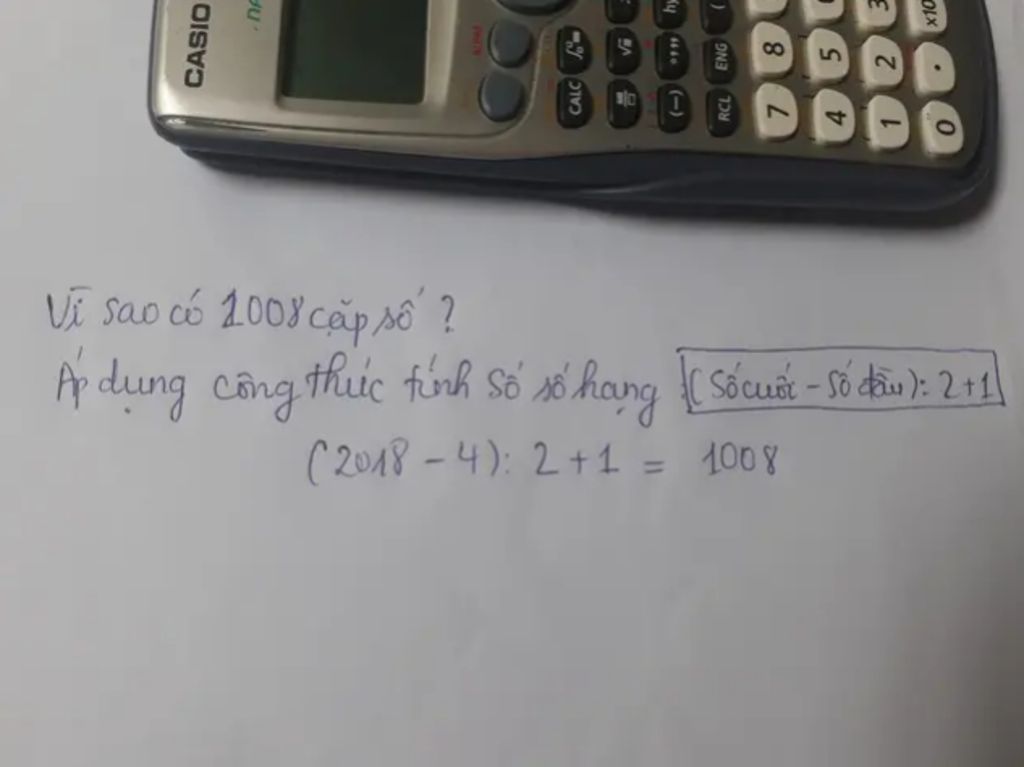 CASIO
CALC
ENG
RCL
(−)
hy
x10
7 8
4 5
1 2 3
0 .
Vì sao có 1008 cặp số ?
Áp dụng công thức tính số số hạng (Số cuối - số đầu): 2+1
(2018 - 4): 2 + 1 = 1008